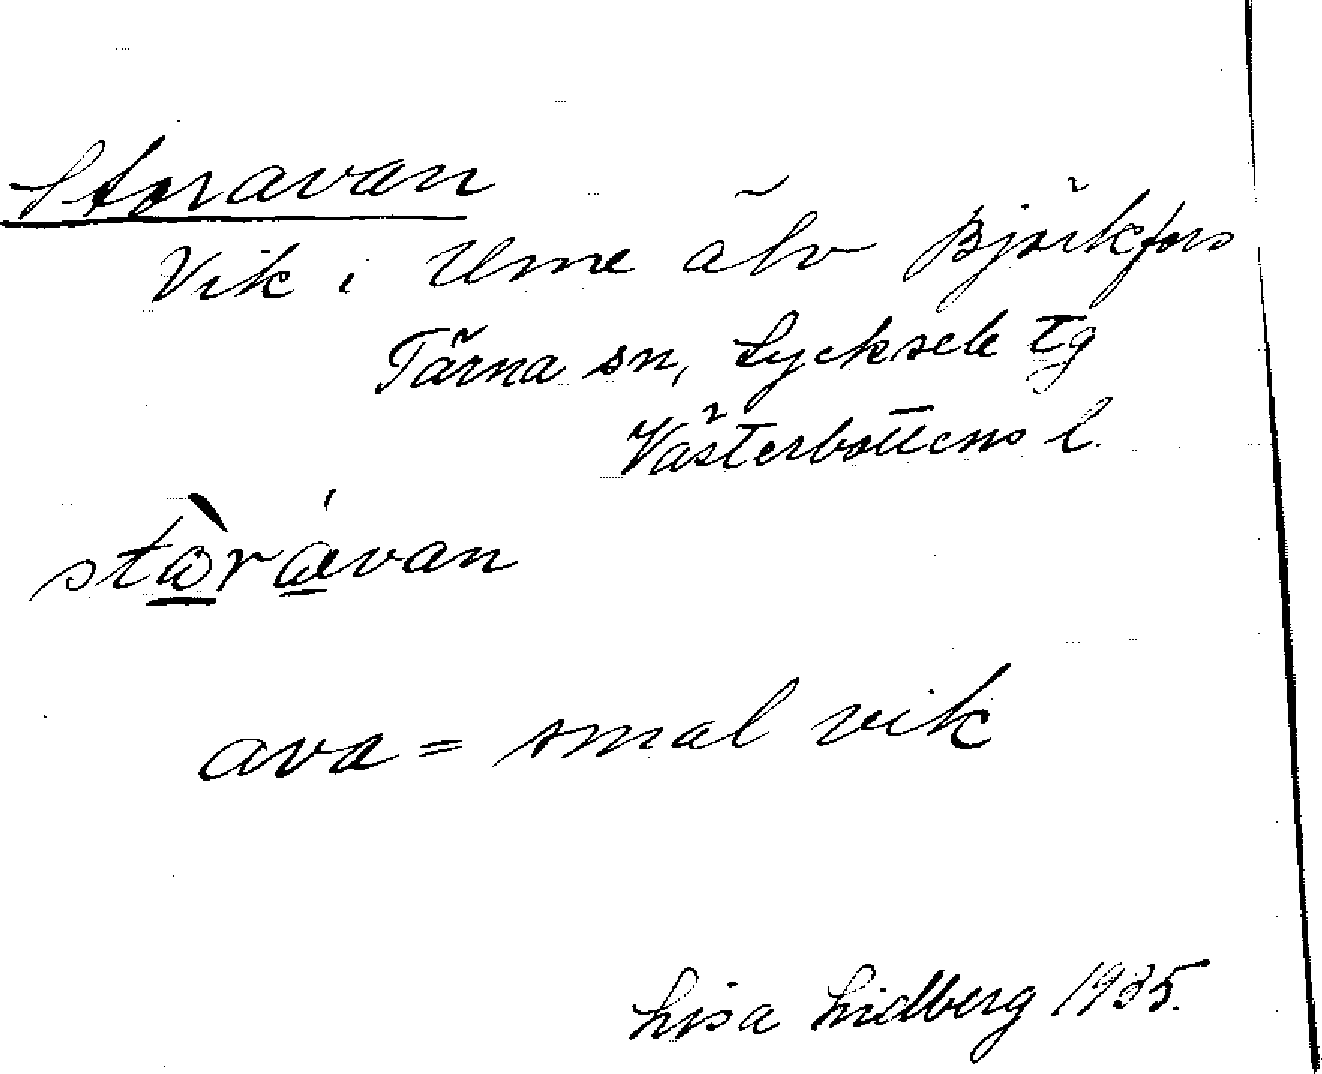 Storavan
Vik i Ume älv Björkfors
Tärna sn, Lycksele tg
Västerbottens l.
stòrávan
ava = smal vik
Lisa Lidberg 1935.